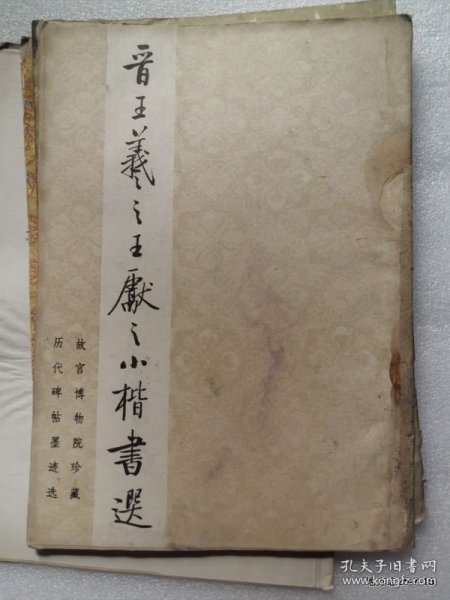 晋王羲之王獻之小楷書選
故宫博物院珍藏
历代碑帖墨迹选
孔夫子旧书网